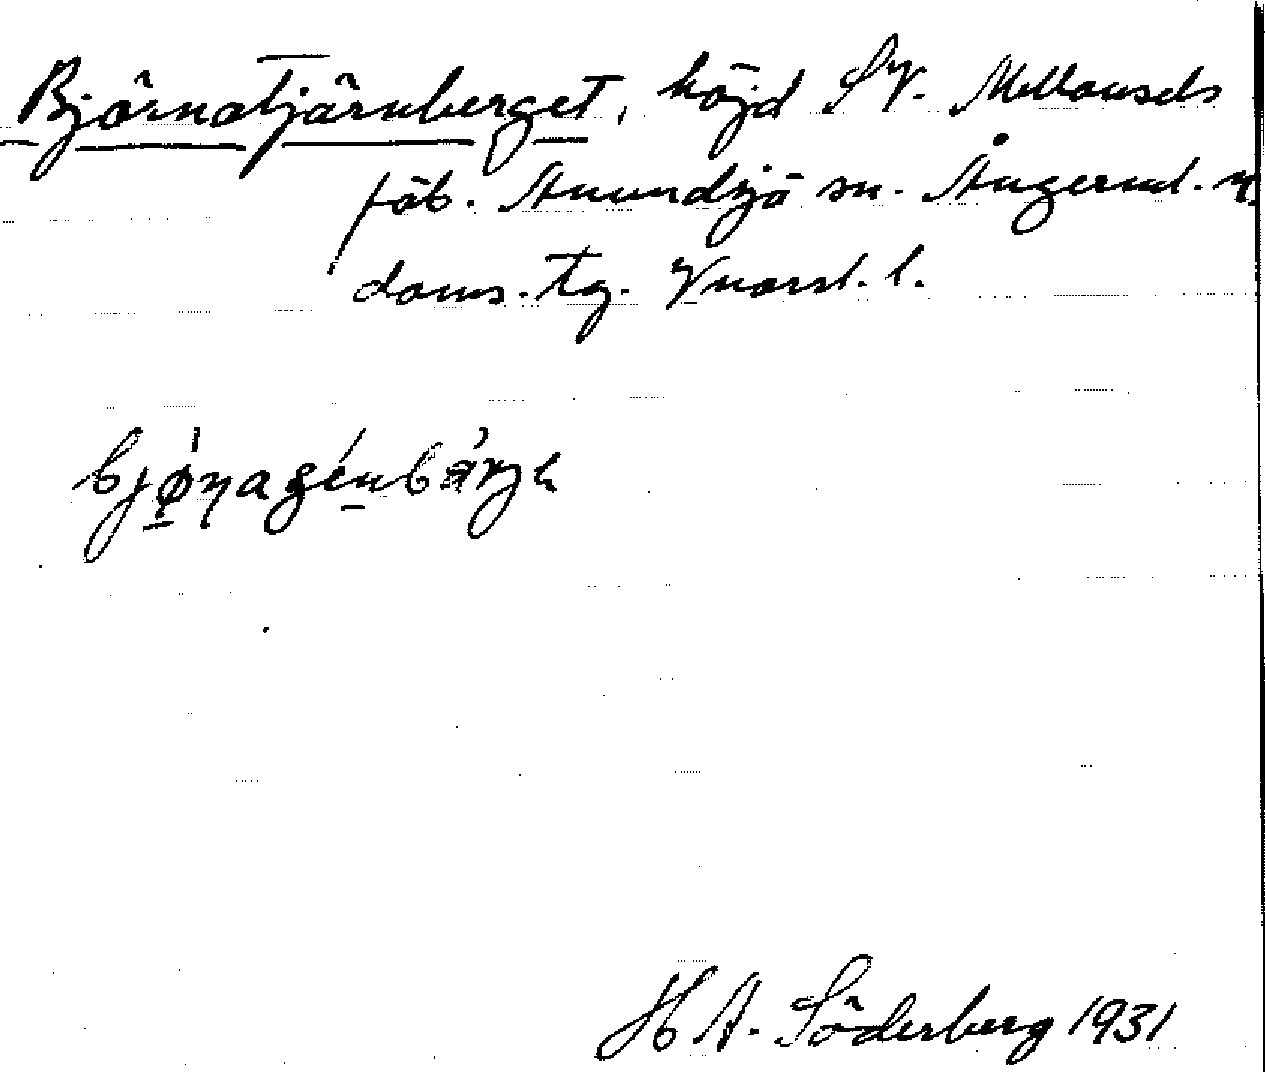 Björnatjärnberget, höjd SV. Mellansels
fäb. Anundsjö sn. Ångerml. n.
doms. tg. Vnorrl. l.
H A. Söderberg 1931